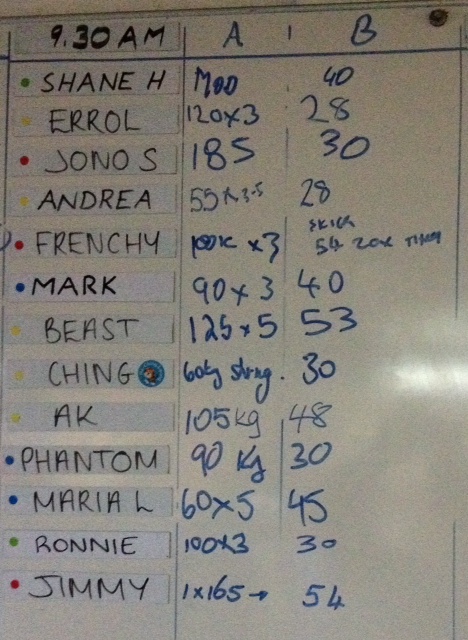 9.30 AM A B
SHANE H MOD 40
ERROL 120x3 28
JONO S 185 30
ANDREA 55 x 3.5 28
FRENCHY 100K x3 54 20x
MARK 90 x 3 40
BEAST 125 x 5 53
CHING 60kg strng. 30
AK 105kg 48
PHANTOM 90 Kg 30
MARIA L 60x5 45
RONNIE 100x3 30
JIMMY 1x165→ 54